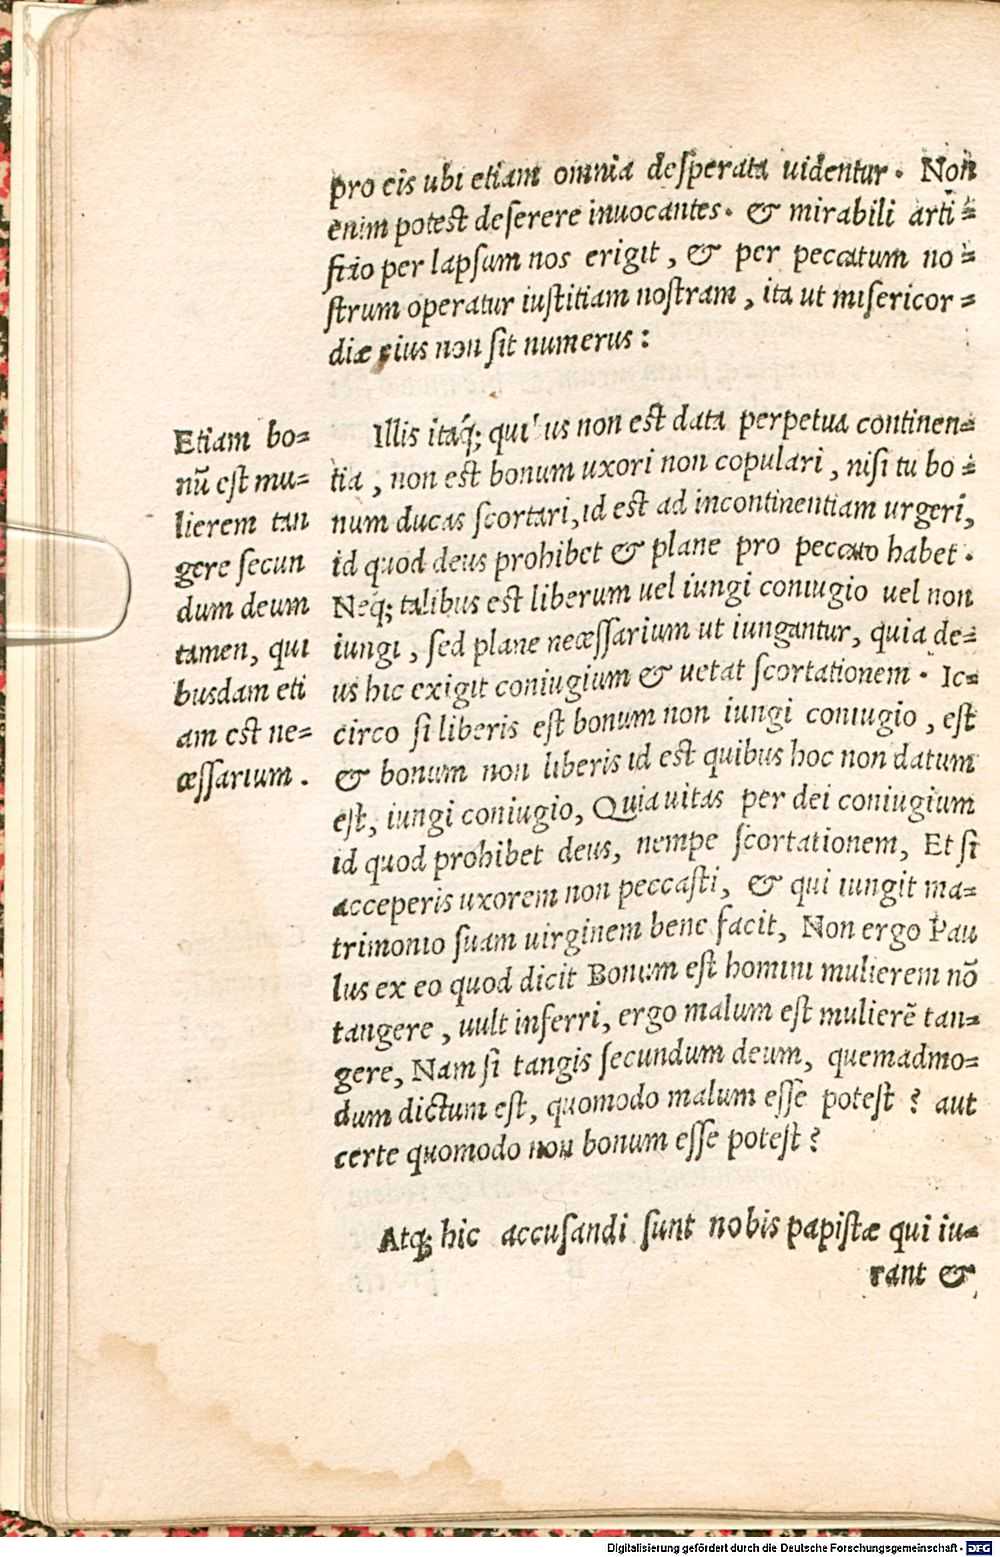 pro eis ubi etiam omnia desperata uidentur. Non
enim potest deserere inuocantes. & mirabili arti=
ficio per lapsum nos erigit, & per peccatum no=
strum operatur iustitiam nostram, ita ut misericor=
diæ eius non sit numerus:
Etiam bo=
nū est mu=
lierem tan
gere secun
dum deum
tamen, qui
busdam eti
am est ne=
cessarium.
Illis itaq́; qui us non est data perpetua continen=
tia, non est bonum uxori non copulari, nisi tu bo=
num ducas scortari, id est ad incontinentiam urgeri,
id quod deus prohibet & plane pro peccato habet.
Neq; talibus est liberum uel iungi coniugio uel non
iungi, sed plane necessarium ut iungantur, quia de=
us hic exigit coniugium & uetat scortationem. Ic=
circo si liberis est bonum non iungi coniugio, est
& bonum non liberis id est quibus hoc non datum
est, iungi coniugio, Quia uitas per dei coniugium
id quod prohibet deus, nempe scortationem, Et si
acceperis uxorem non peccasti, & qui iungit ma=
trimonio suam uirginem bene facit, Non ergo Pau
lus ex eo quod dicit Bonum est homini mulierem nō
tangere, uult inferri, ergo malum est mulierē tan=
gere, Nam si tangis secundum deum, quemadmo=
dum dictum est, quomodo malum esse potest? aut
certe quomodo non bonum esse potest?
Atq; hic accusandi sunt nobis papistæ qui iu=
rant &
Digitalisierung gefördert durch die Deutsche Forschungsgemeinschaft - DFG